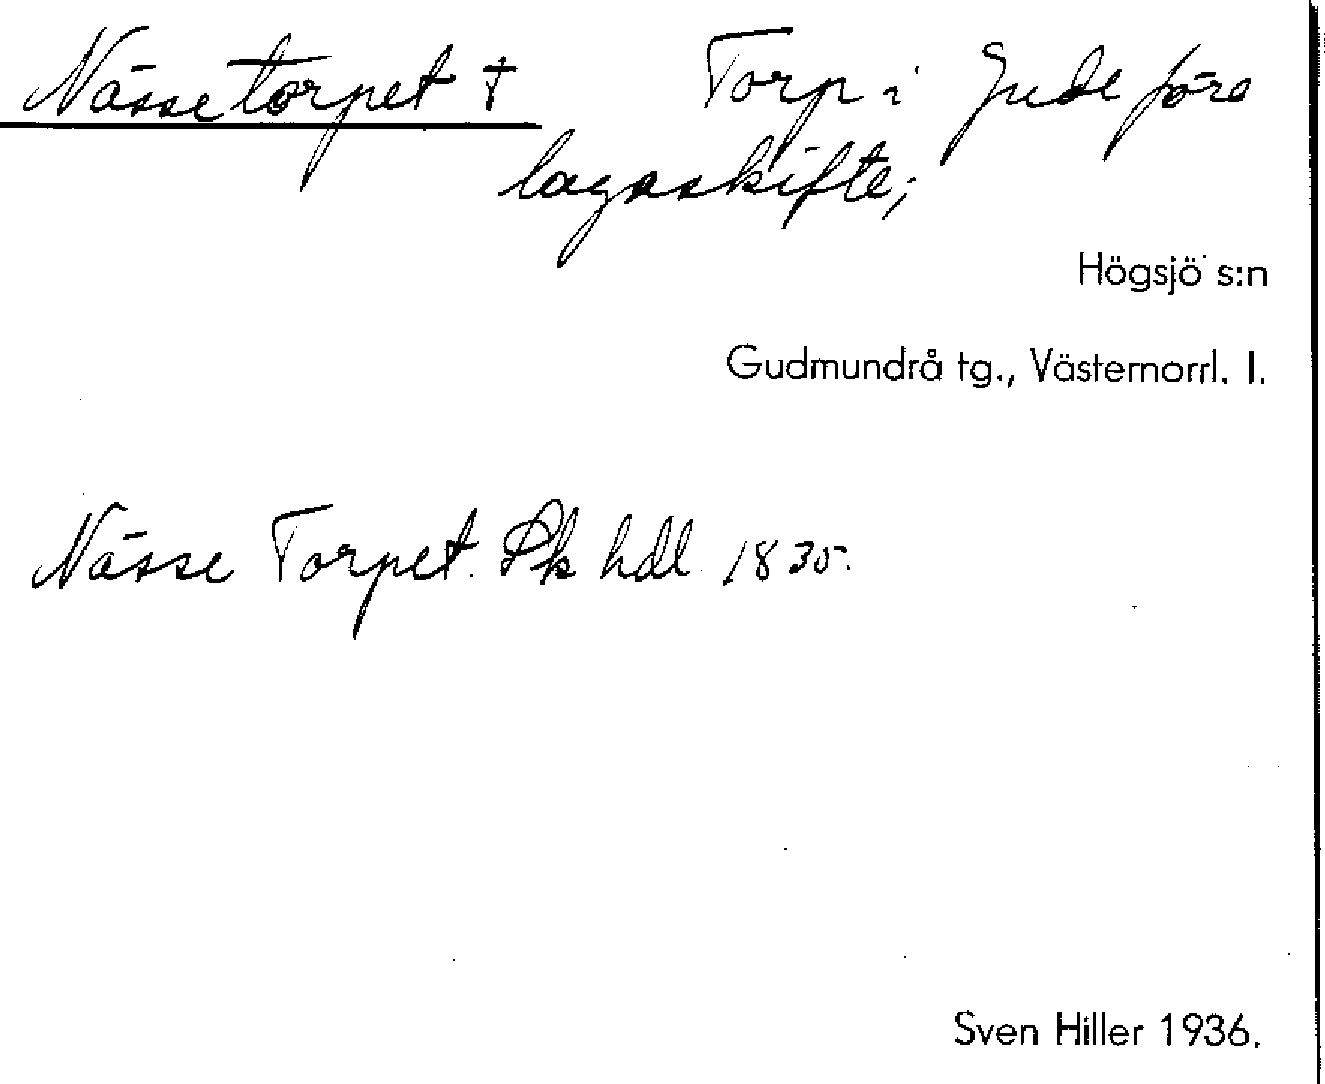 Nässetorpet † Torp i Gude före
lagaskifte;
Högsjö s:n
Gudmundrå tg., Västernorrl. l.
Nässe Torpet. Sk hdl 1835.
Sven Hiller 1936.